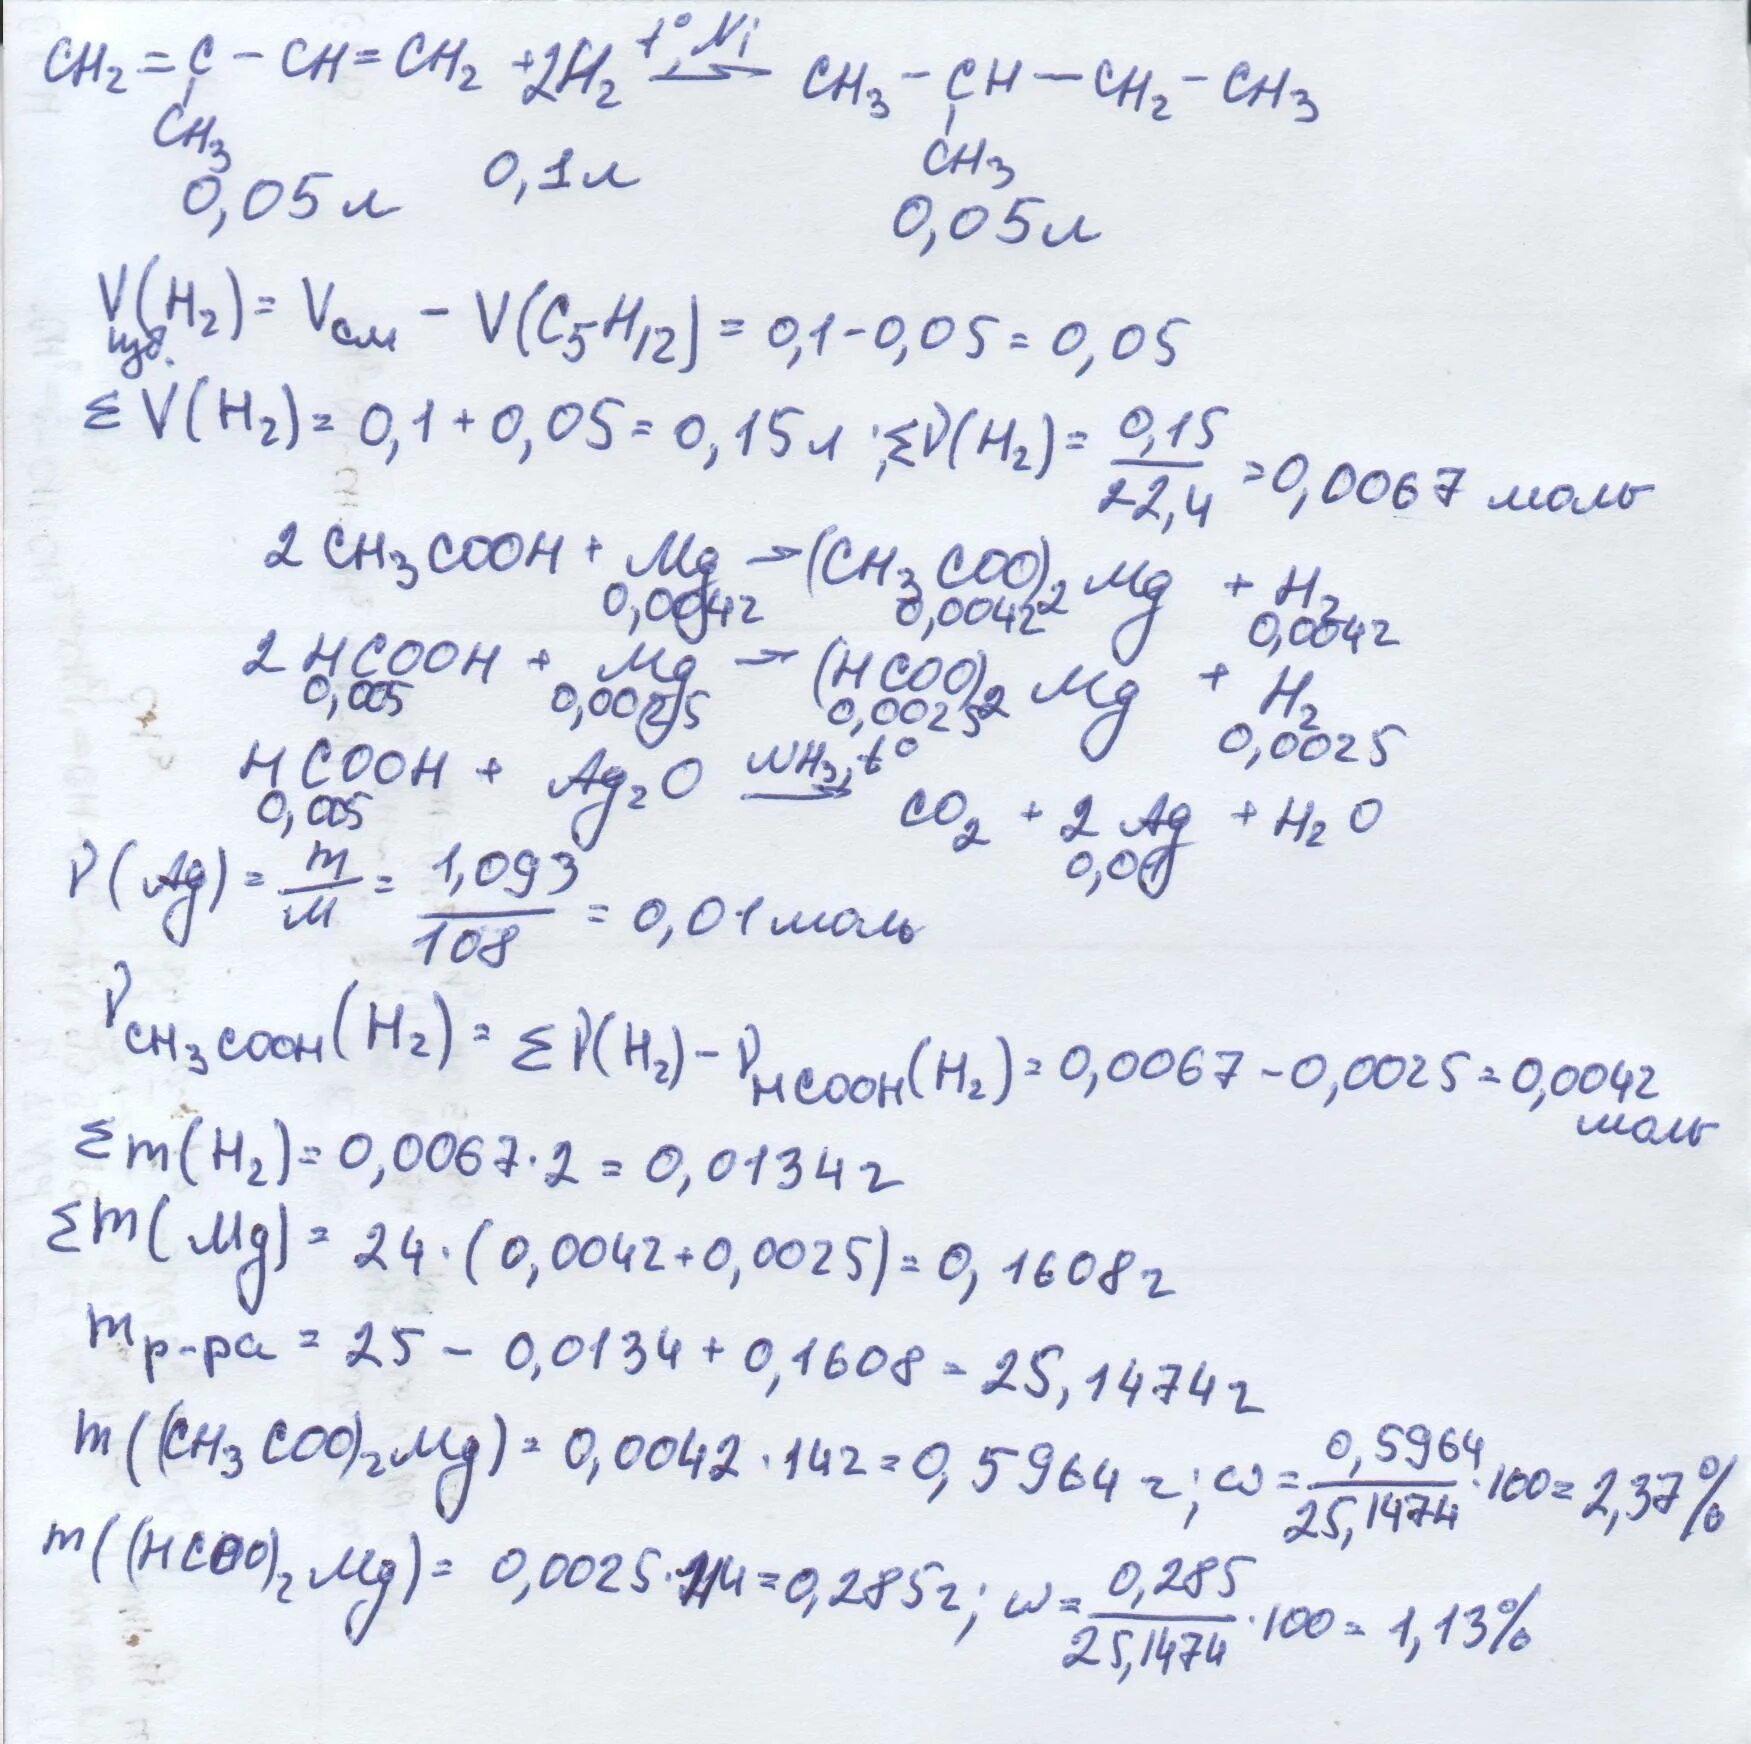 CH2 = C - CH = CH2 + 2H2 t°, Ni → CH3 - CH - CH2 - CH3
CH3 CH3
0,05л 0,1л 0,05л
V(H2) = Vсм - V(C5H12) = 0,1 - 0,05 = 0,05
изб.
Σ V(H2) = 0,1 + 0,05 = 0,15л ; Σν(H2) = 0,15/22,4 = 0,0067 моль
2 CH3COOH + Mg → (CH3COO)2 Mg + H2
0,0042 0,0042 0,0042
2 HCOOH + Mg → (HCOO)2 Mg + H2
0,005 0,0025 0,0025 0,0025
HCOOH + Ag2O NH3, t° → CO2 + 2 Ag + H2O
0,005 0,01
ν(Ag) = m/M = 1,093/108 = 0,01 моль
ν CH3COOH (H2) = Σν(H2) - ν HCOOH (H2) = 0,0067 - 0,0025 = 0,0042
моль
Σ m(H2) = 0,0067 · 2 = 0,0134 г
Σ m(Mg) = 24 · (0,0042 + 0,0025) = 0,1608 г
m р-ра = 25 - 0,0134 + 0,1608 = 25,1474 г
m((CH3COO)2Mg) = 0,0042 · 142 = 0,5964 г ; ω = 0,5964/25,1474 · 100 = 2,37%
m((HCOO)2Mg) = 0,0025 · 114 = 0,285 г ; ω = 0,285/25,1474 · 100 = 1,13%